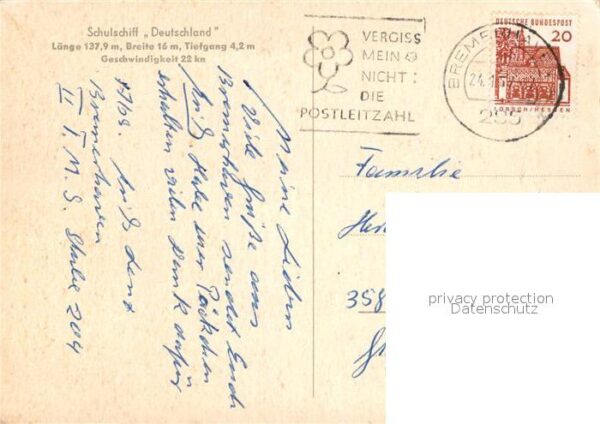 Schulschiff „Deutschland"
Länge 137,9 m, Breite 16 m, Tiefgang 4,2 m
Geschwindigkeit 22 kn
VERGISS
MEIN
NICHT:
DIE
POSTLEITZAHL
DEUTSCHE BUNDESPOST
20
LORSCH/HESSEN
285
Meine Lieben
Viele Grüße aus
Bremerhaven sendet Euch
Habe euer Päckchen
erhalten vielen Dank dafür
Bremerhaven
Stube 204
Familie
358
privacy protection
Datenschutz